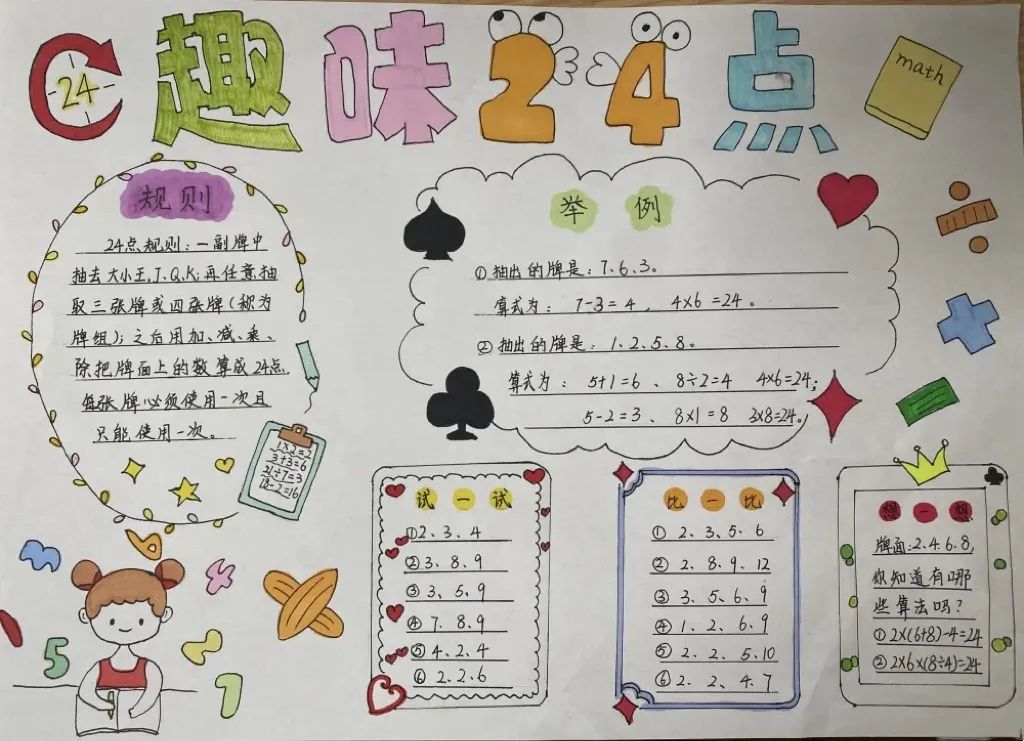 24
趣味24点
math
规则
24点规则:一副牌中
抽去大小王,J、Q、K;再任意抽
取三张牌或四张牌(称为
牌组);之后用加、减、乘、
除把牌面上的数算成24点.
每张牌必须使用一次且
只能使用一次。
1×2=2
3+3=6
21÷7=3
18-2=16
举例
①抽出的牌是:7、6、3。
算式为: 7-3=4, 4×6=24。
②抽出的牌是: 1、2、5、8。
算式为: 5+1=6、 8÷2=4 4×6=24;
5-2=3、 8×1=8 3×8=24。
试一试
①2、3、4
②3、8、9
③3、5、9
④7、8、9
⑤4、2、4
⑥2、2、6
比一比
①2、3、5、6
②2、8、9、12
③3、5、6、9
④1、2、6、9
⑤2、2、5、10
⑥2、2、4、7
想一想
牌面:2、4、6、8,
你知道有哪
些算法吗?
①2×(6+8)-4=24
②2×6×(8÷4)=24
5
7